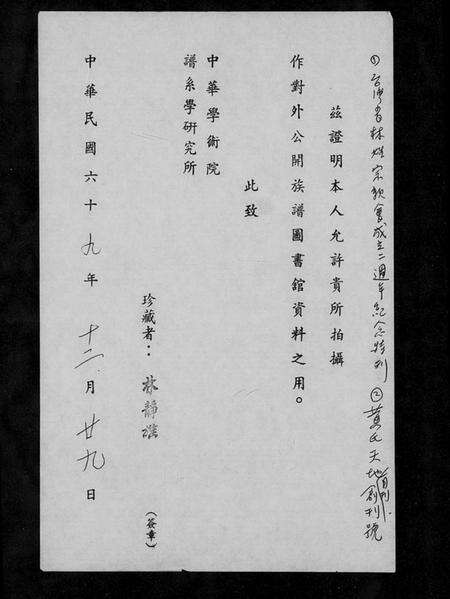 ①台灣省林姓宗親會成立二週年紀念特刊 ②黃氏天地月刊創刊號
茲證明本人允許貴所拍攝
作對外公開族譜圖書館資料之用。
此致
中華學術院
譜系學研究所
珍藏者：林靜
（簽章）
中華民國六十九年十二月廿九日